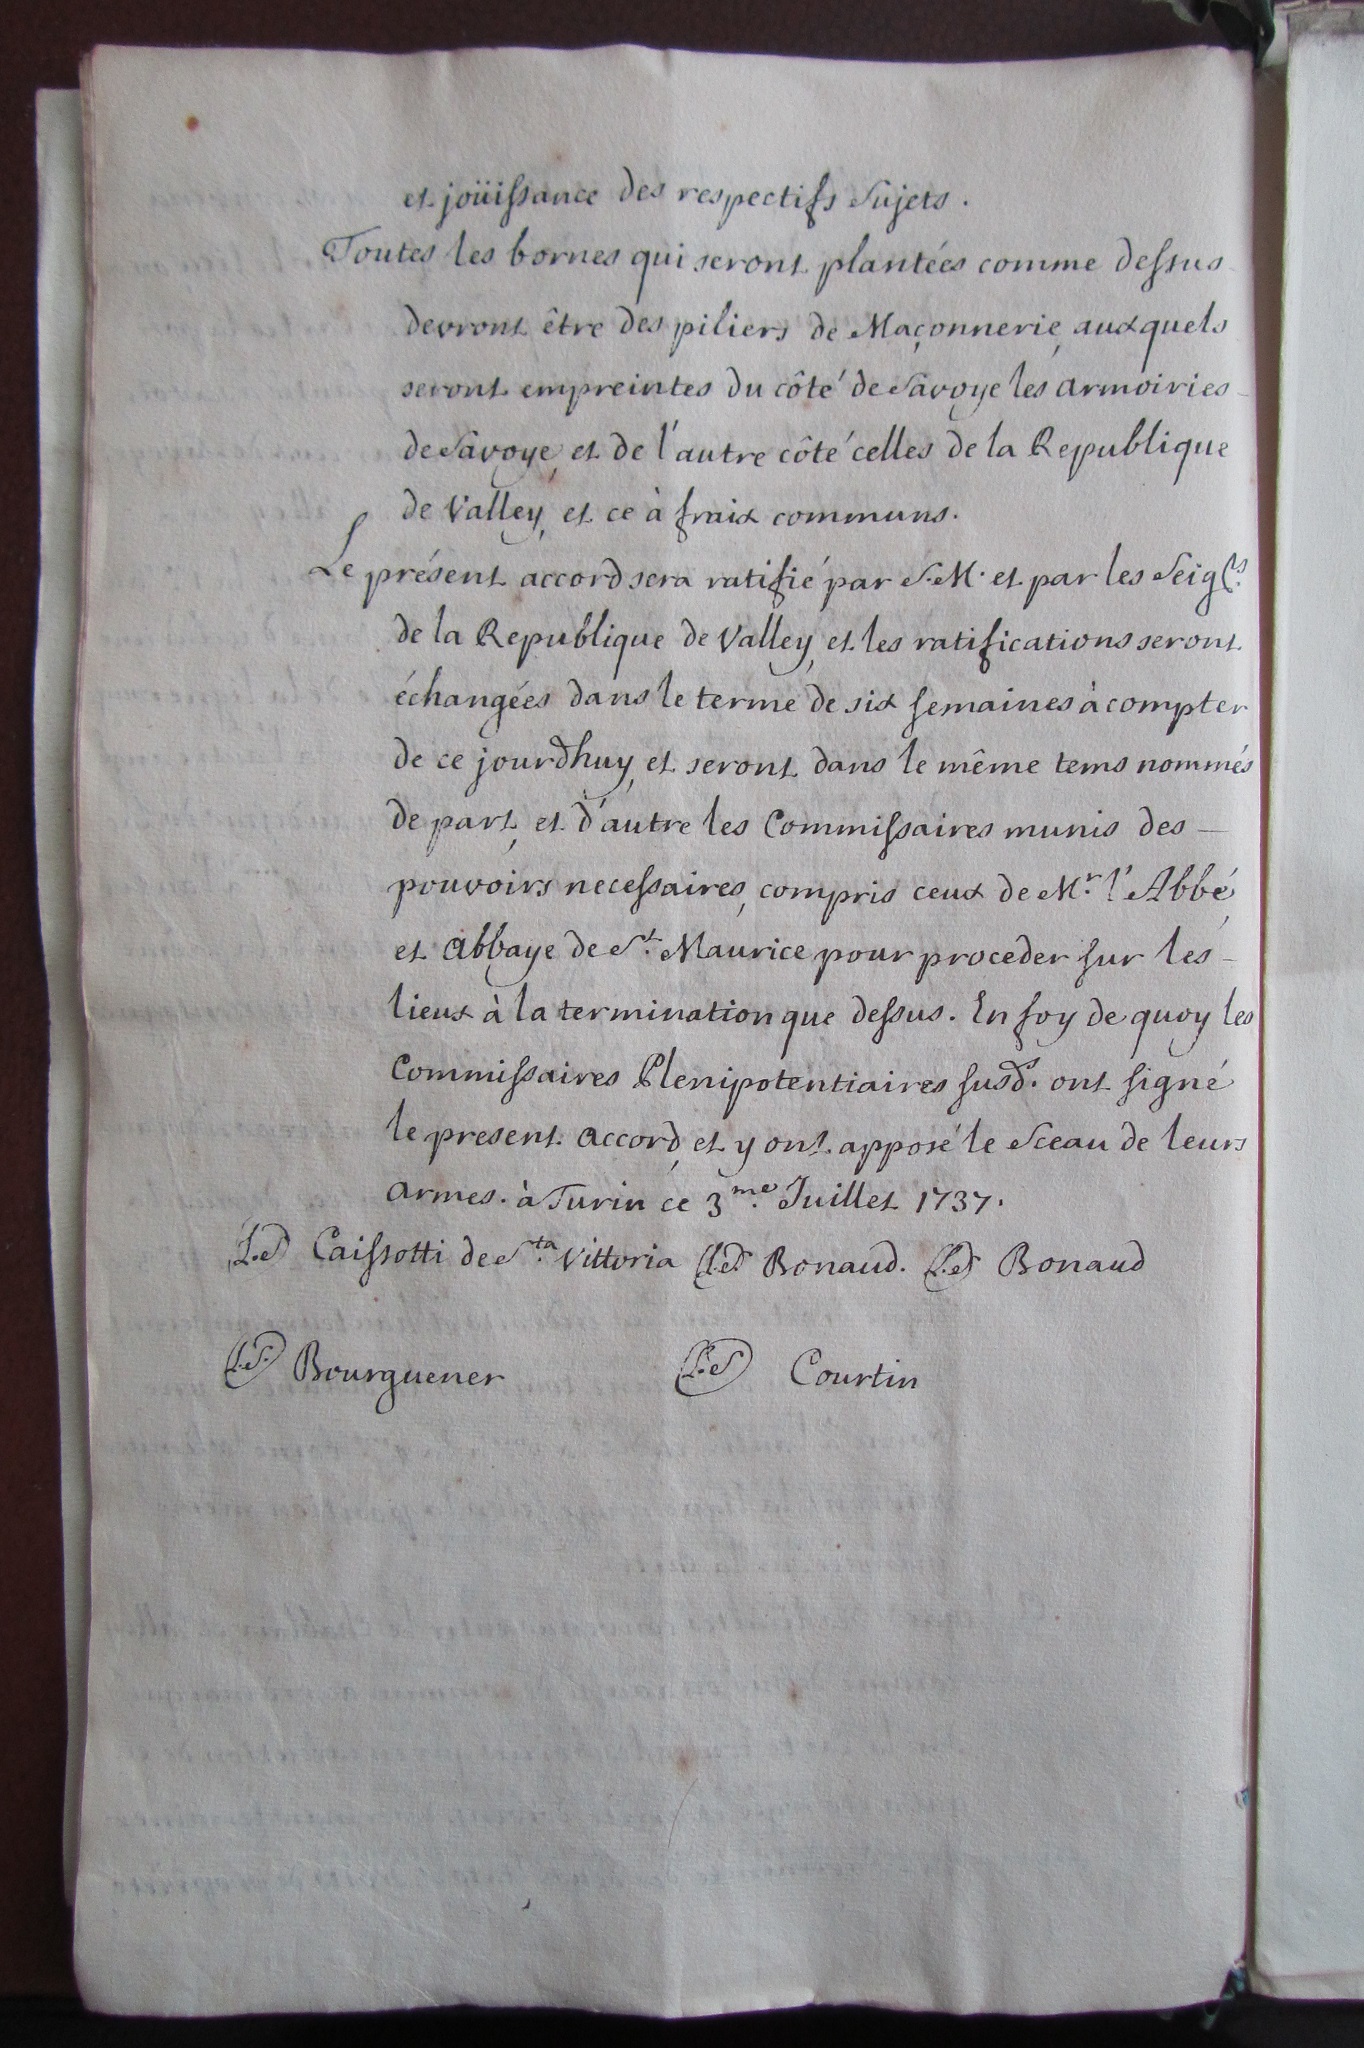 et joüissance des respectifs Sujets.
Toutes les bornes qui seront plantées comme dessus
devront être des piliers de Maçonnerie, auxquels
seront empreintes du côté de Savoye les armoiries
de Savoye, et de l'autre côté celles de la Republique
de Valley, et ce à fraix communs.
Le présent accord sera ratifié par S. M. et par les Seigrs.
de la Republique de Valley, et les ratifications seront
échangées dans le terme de six semaines à compter
de ce jourdhuy, et seront dans le même tems nommés
de part, et d'autre les Commissaires munis des —
pouvoirs necessaires, compris ceux de Mr. l'Abbé,
et Abbaye de St. Maurice pour proceder sur les —
lieux à la termination que dessus. En foy de quoy les
Commissaires Plenipotentiaires susds. ont signé
le present accord, et y ont apposé le Sceau de leurs
armes. à Turin ce 3me. Juillet 1737.
L.S. Caissotti de Sta. Vittoria L.S. Bonaud. L.S. Bonaud
L.S. Bourguener L.S. Courtin